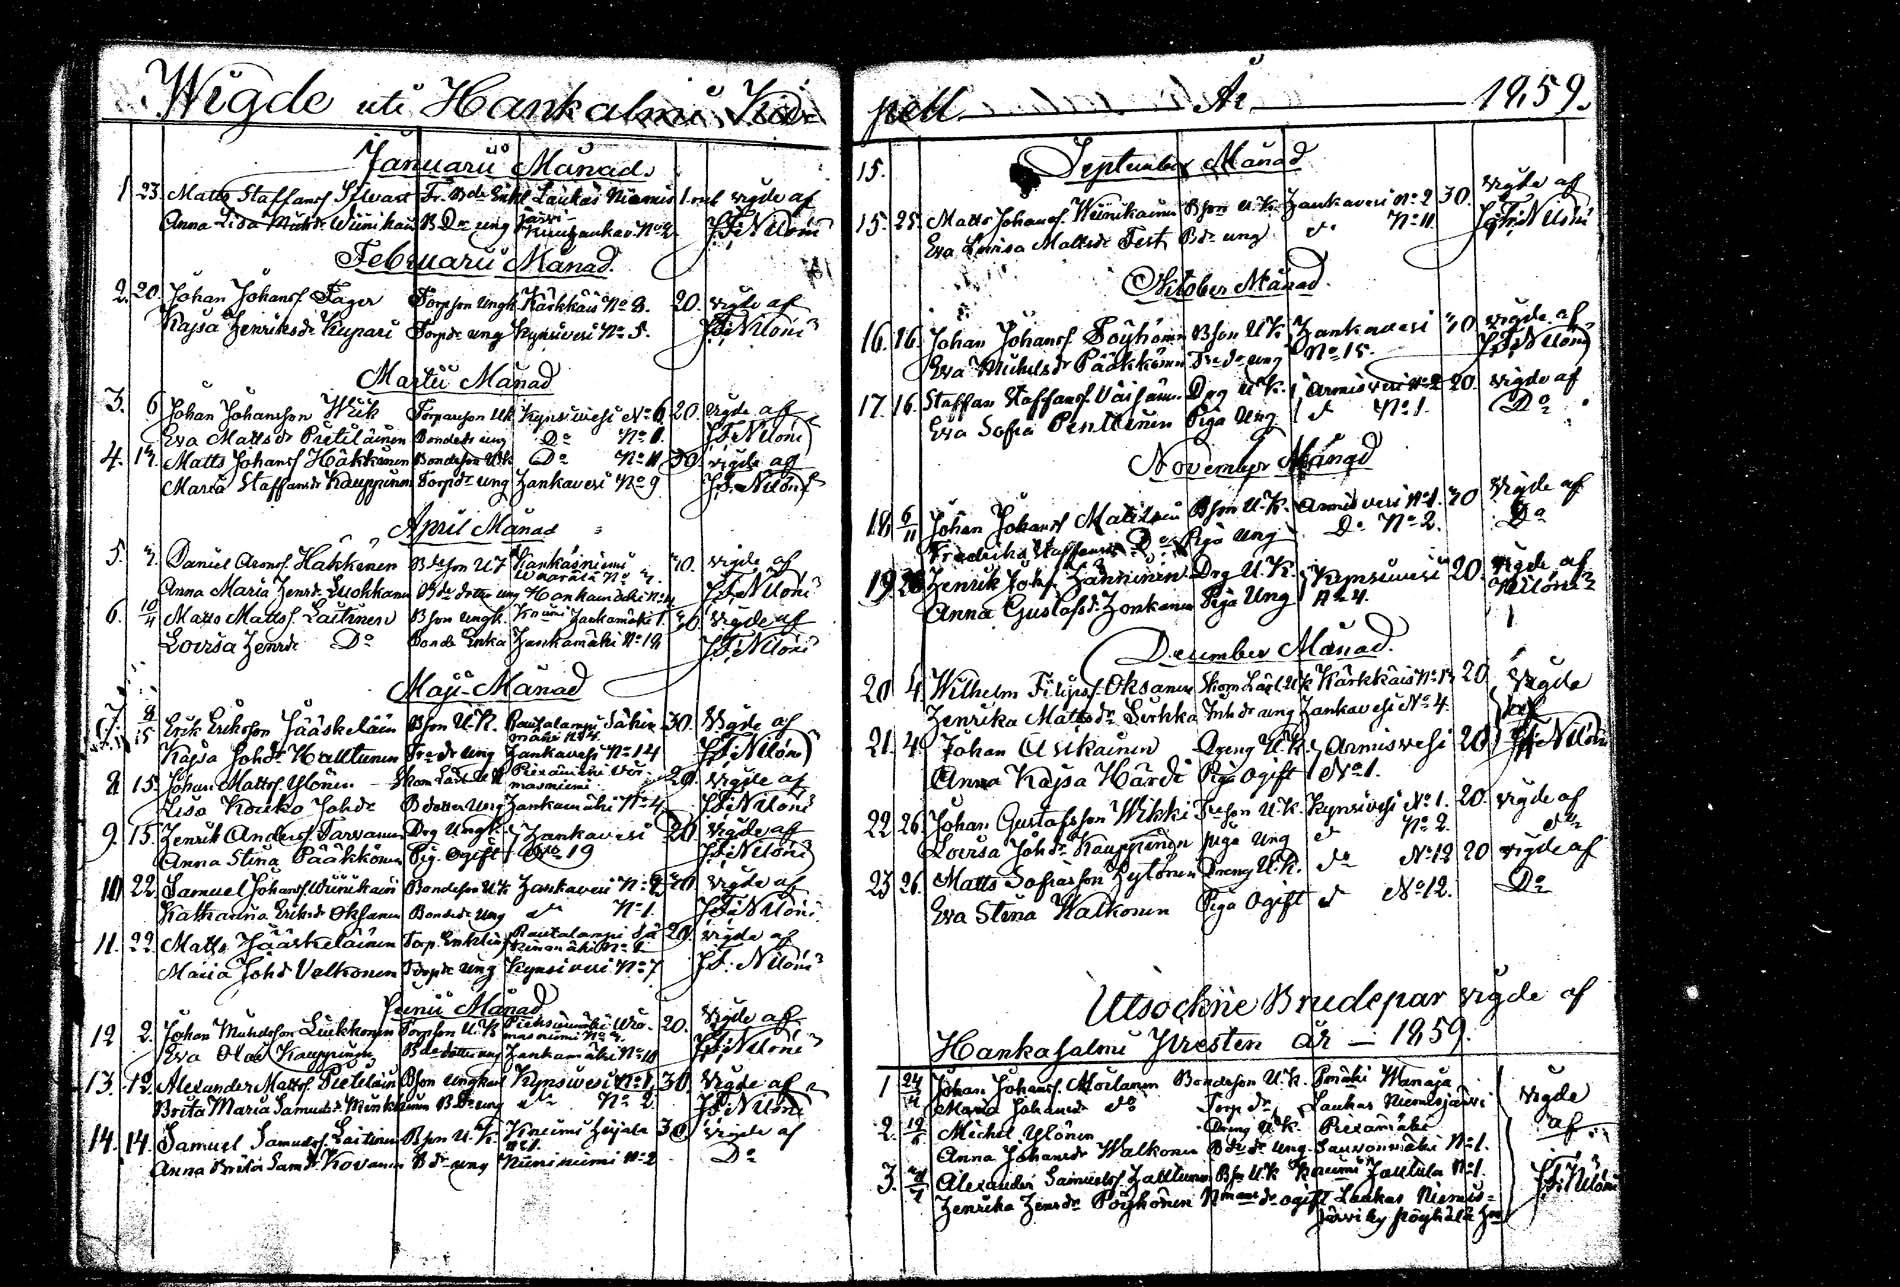 Wigde uti Hankasalmi Ka-
Januarii Månad.
1 23. Matts Staffansf Silvast Fr. Bde Enkl Laukas Niemis 1 rub vigde af
Anna Lisa Mich:dr Wiinikain B Dr ung järvi Kuuhankav. No 2. J.F. Niloni
Februarii Månad.
2. 20. Johan Johansf Fager Torpson Ungk. Kärkkäis No 3. 20. vigde af
Kajsa Henriksdr Kupari Torpdr ung Kynsivesi No 5. J.F. Niloni
Martii Månad
3. 6 Johan Johansson Wiik Torpareson UK Kynsivesi No 6 20. vigde af
Eva Mattsdr Pietiläinen Bondedr ung Do No 1. J.F. Niloni
4. Matts Johansf Häkkinen Bondeson UK Do No 11 30. vigde af
Maria Staffansdr Kauppinen Torpdr ung Hankavesi No 9 J.F. Niloni
April Månad
5. Daniel Aronsf Häkkinen Bdeson UK Kankasniemi vigde af
Anna Maria Henrdr Luohkanen Bde dotter ung Hankamäki No 4 J.F. Niloni
6. 10/4 Matts Mattsf Laitinen Bson ungk. Hankamäki 1. vigde af
Lovisa Henrdr Do Bonde Enka Hankamäki No 19 J.F. Niloni
Maji Månad
7. 8 Erik Eriksson Jääskeläin Bson U.K. Rautalampi Säkin 30. Vigde af
15 mäki No 4.
Kajsa Johdr Halttunen dr ung Hankavesi No 14 J.F. Niloni
8 15. Johan Mattsf Ylönen UK Piexämäki 20. vigde af
Lisa Kouko Johdr B dotter Ung Hankamäki No 4 J.F. Niloni
9. 15. Henrik Andersf Tarvainen Drg Ungk. Hankavesi 20. vigde af
Anna Stina Pääkkönen Pig. ogift No 19 J.F. Niloni
10 22. Samuel Johansf Wiinikain Bondeson UK Hankavesi No 2 vigde af
Katharina Eriksdr Oksanen Bondedr Ung do No 1. J.F. Niloni
11. 22. Matts Jääskeläinen Torp. Enkling Rautalampi 20. vigde af
Maria Johdr Valkonen Torpdr ung Kynsivesi No 7 J.F. Niloni
Junii Månad
12 2. Johan Michelsson Liukkonen Torpson U.K. Pieksämäki 20. vigde af
Eva Olai Kauppinen Bde dotter ung Hankamäki No 11 J.F. Niloni
13. 12 Alexander Mattsf Pietiläin Bson ungkarl Kynsivesi No 1. 30. Vigde af
Brita Maria Samuelsdr Minkkinen B Dr ung do No 2 J.F. Niloni
14. 14. Samuel Samuelsf Laitinen Bson U.K. No 1. 30 vigde af
Anna Brita Samdr Kovanen Bdr ung Niininiemi No 2 Do
pell År 1859.
15. September Månad
15. 25. Matts Johansf Wiinikainen Bson U.K. Hankavesi No 2 30. vigde af
Eva Lovisa Mattsdr Test Bdr ung do No 11 J.F. Niloni
October Månad.
16. 16. Johan Johansf Pöyhönen Bson UK Hankavesi vigde af
Eva Michelsdr Pääkkönen dr ung No 15. J.F. Niloni
17. 16. Staffan Staffansf Väisänen Drg U.K. Armisvesi No 2 20. vigde af
Eva Sofia Penttinen Piga Ung do No 1. Do
November Månad
18 6/11 Johan Johansf Matilain Bson U.K. Armisvesi No 1. vigde af
Fredrika Staffansdr Do Piga Ung Do No 2. Do
19 Henrik Johsf Hänninen Drg U.K. Kynsivesi 20. vigde af
Anna Gustafsdr Honkanen Piga Ung No 4. Niloni
December Månad.
20 4. Wilhelm Filipsf Oksanen UK Kärkkäis 20 vigde
Henrika Mattsdr dr ung Hankavesi No 4. af
21. 4. Johan Asikainen Dreng U.K. Armisvesi 20 J.F. Niloni
Anna Kajsa Härdi Piga Ogift No 1.
22 26. Johan Gustafsson Wikki U.K. Kynsivesi No 1. 20. vigde af
Lovisa Johdr Kauppinen piga Ung do No 2. do
23 26. Matts Sofiasson Hytönen Dreng U.K. do No 12 20 vigde af
Eva Stina Walkonen Piga Ogift do No 12. Do
Utsockne Brudepar vigde af
Hankasalmi Presten år — 1859.
1 24/4 Johan Johansf Moilanen Bondeson U.K. vigde
Maria Johansdr do Torp dr Laukas Niemisjärvi
2. 12/6 Michel Ylönen Dreng U.K. Piexämäki af
Anna Johansdr Walkonen Bde dr ung. No 1.
3. Alexander Samuelsf Halttunen Bson U.K. No 1. J.F. Niloni
Henrika Henrdr Pöyhönen dr ogift Laukas Niemis-
järvi by Pöyhölä